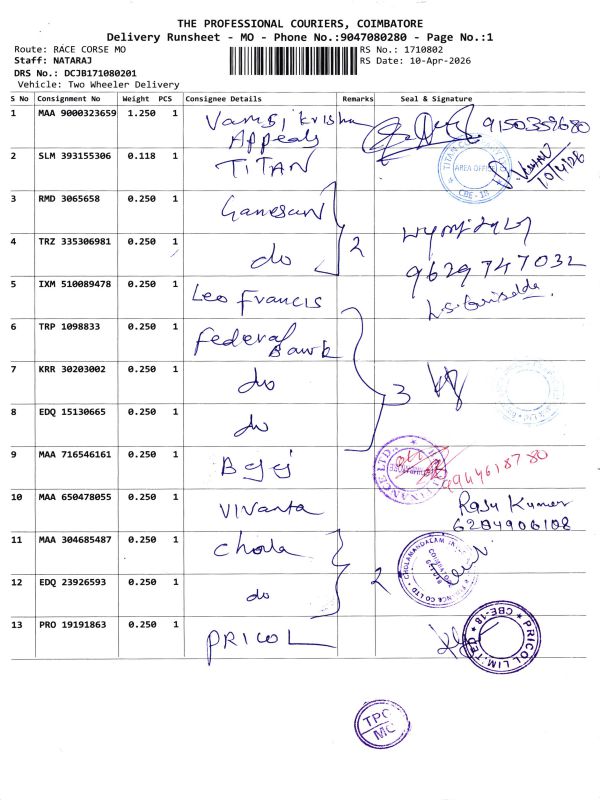 THE PROFESSIONAL COURIERS, COIMBATORE
Delivery Runsheet - MO - Phone No.:9047080280 - Page No.:1
Route: RACE CORSE MO
RS No.: 1710802
Staff: NATARAJ
RS Date: 10-Apr-2026
DRS No.: DCJB171080201
Vehicle: Two Wheeler Delivery
S No Consignment No Weight PCS Consignee Details Remarks Seal & Signature
1 MAA 9000323659 1.250 1 Vamsi Krishna 9150359680
Appeals
2 SLM 393155306 0.118 1 TITAN AREA OFFICE CBE-18 10/4/26
3 RMD 3065658 0.250 1 Ganesan 2
4 TRZ 335306981 0.250 1 do 9629747032
5 IXM 510089478 0.250 1 Leo Francis L.S.
6 TRP 1098833 0.250 1 Federal
Bank
7 KRR 30203002 0.250 1 do 3
8 EDQ 15130665 0.250 1 do
9 MAA 716546161 0.250 1 Bajaj FINANCE LTD. 9944618780
10 MAA 650478055 0.250 1 Vivanta Raju Kumar
6204906108
11 MAA 304685487 0.250 1 Chola CHOLAMANDALAM
12 EDQ 23926593 0.250 1 do 2 FINANCE CO LTD
13 PRO 19191863 0.250 1 PRICOL PRICOL LIMITED CBE-18
TPC
MO